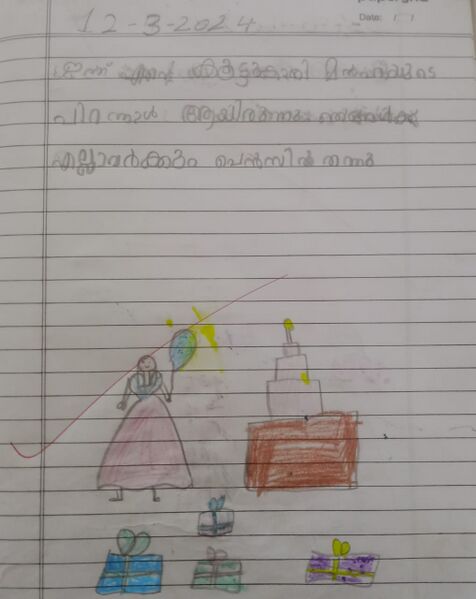 12-3-2024
Date: / /
ഇന്ന് എന്റെ കൂട്ടുകാരി
പിറന്നാൾ ആയിരുന്നു
എല്ലാവർക്കും പെൻസിൽ തന്നു